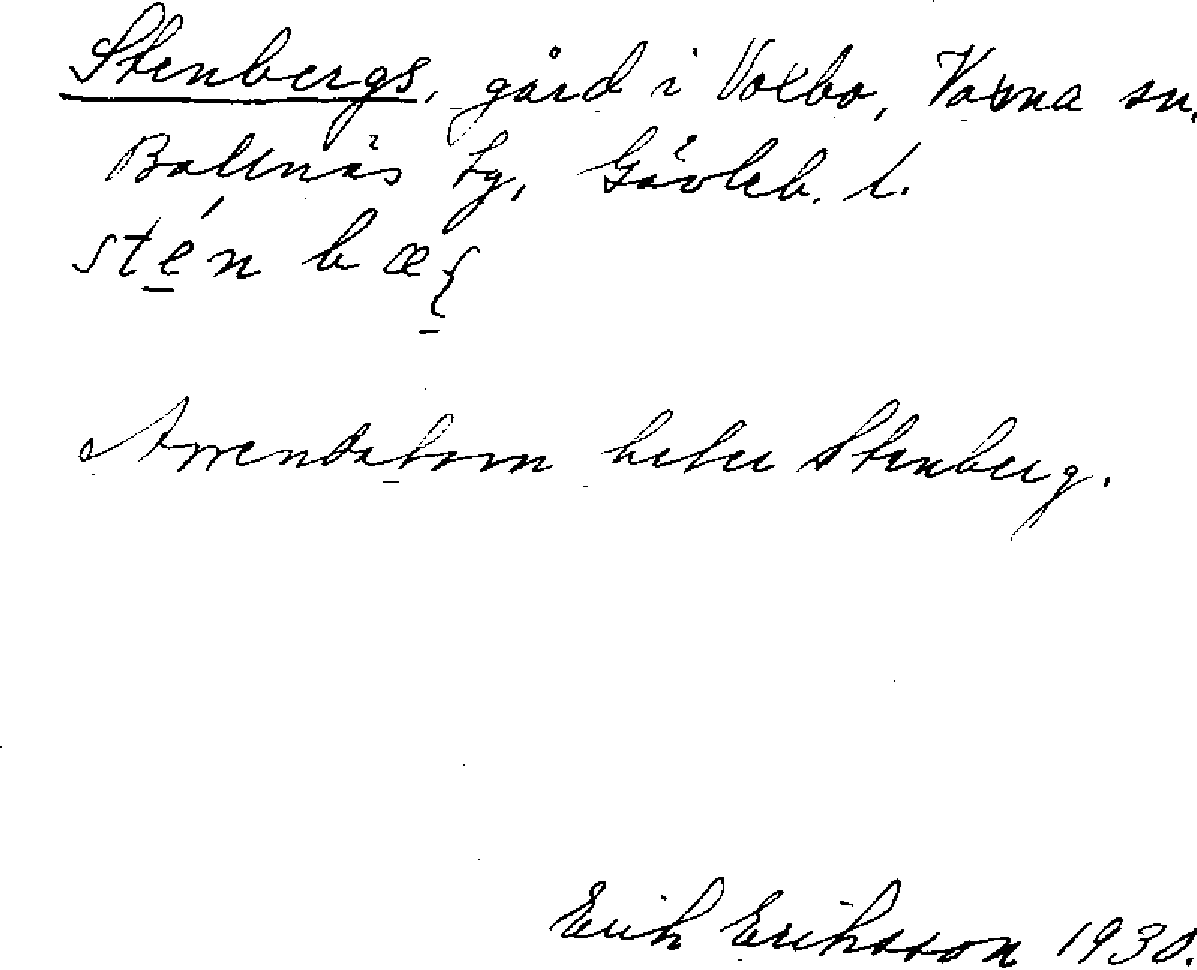 Stenbergs, gård i Voxbo, Voxna sn.
Bollnäs tg, Gävleb. l.
sténbæ
Arrendatorn heter Stenberg.
Erik Eriksson 1930.